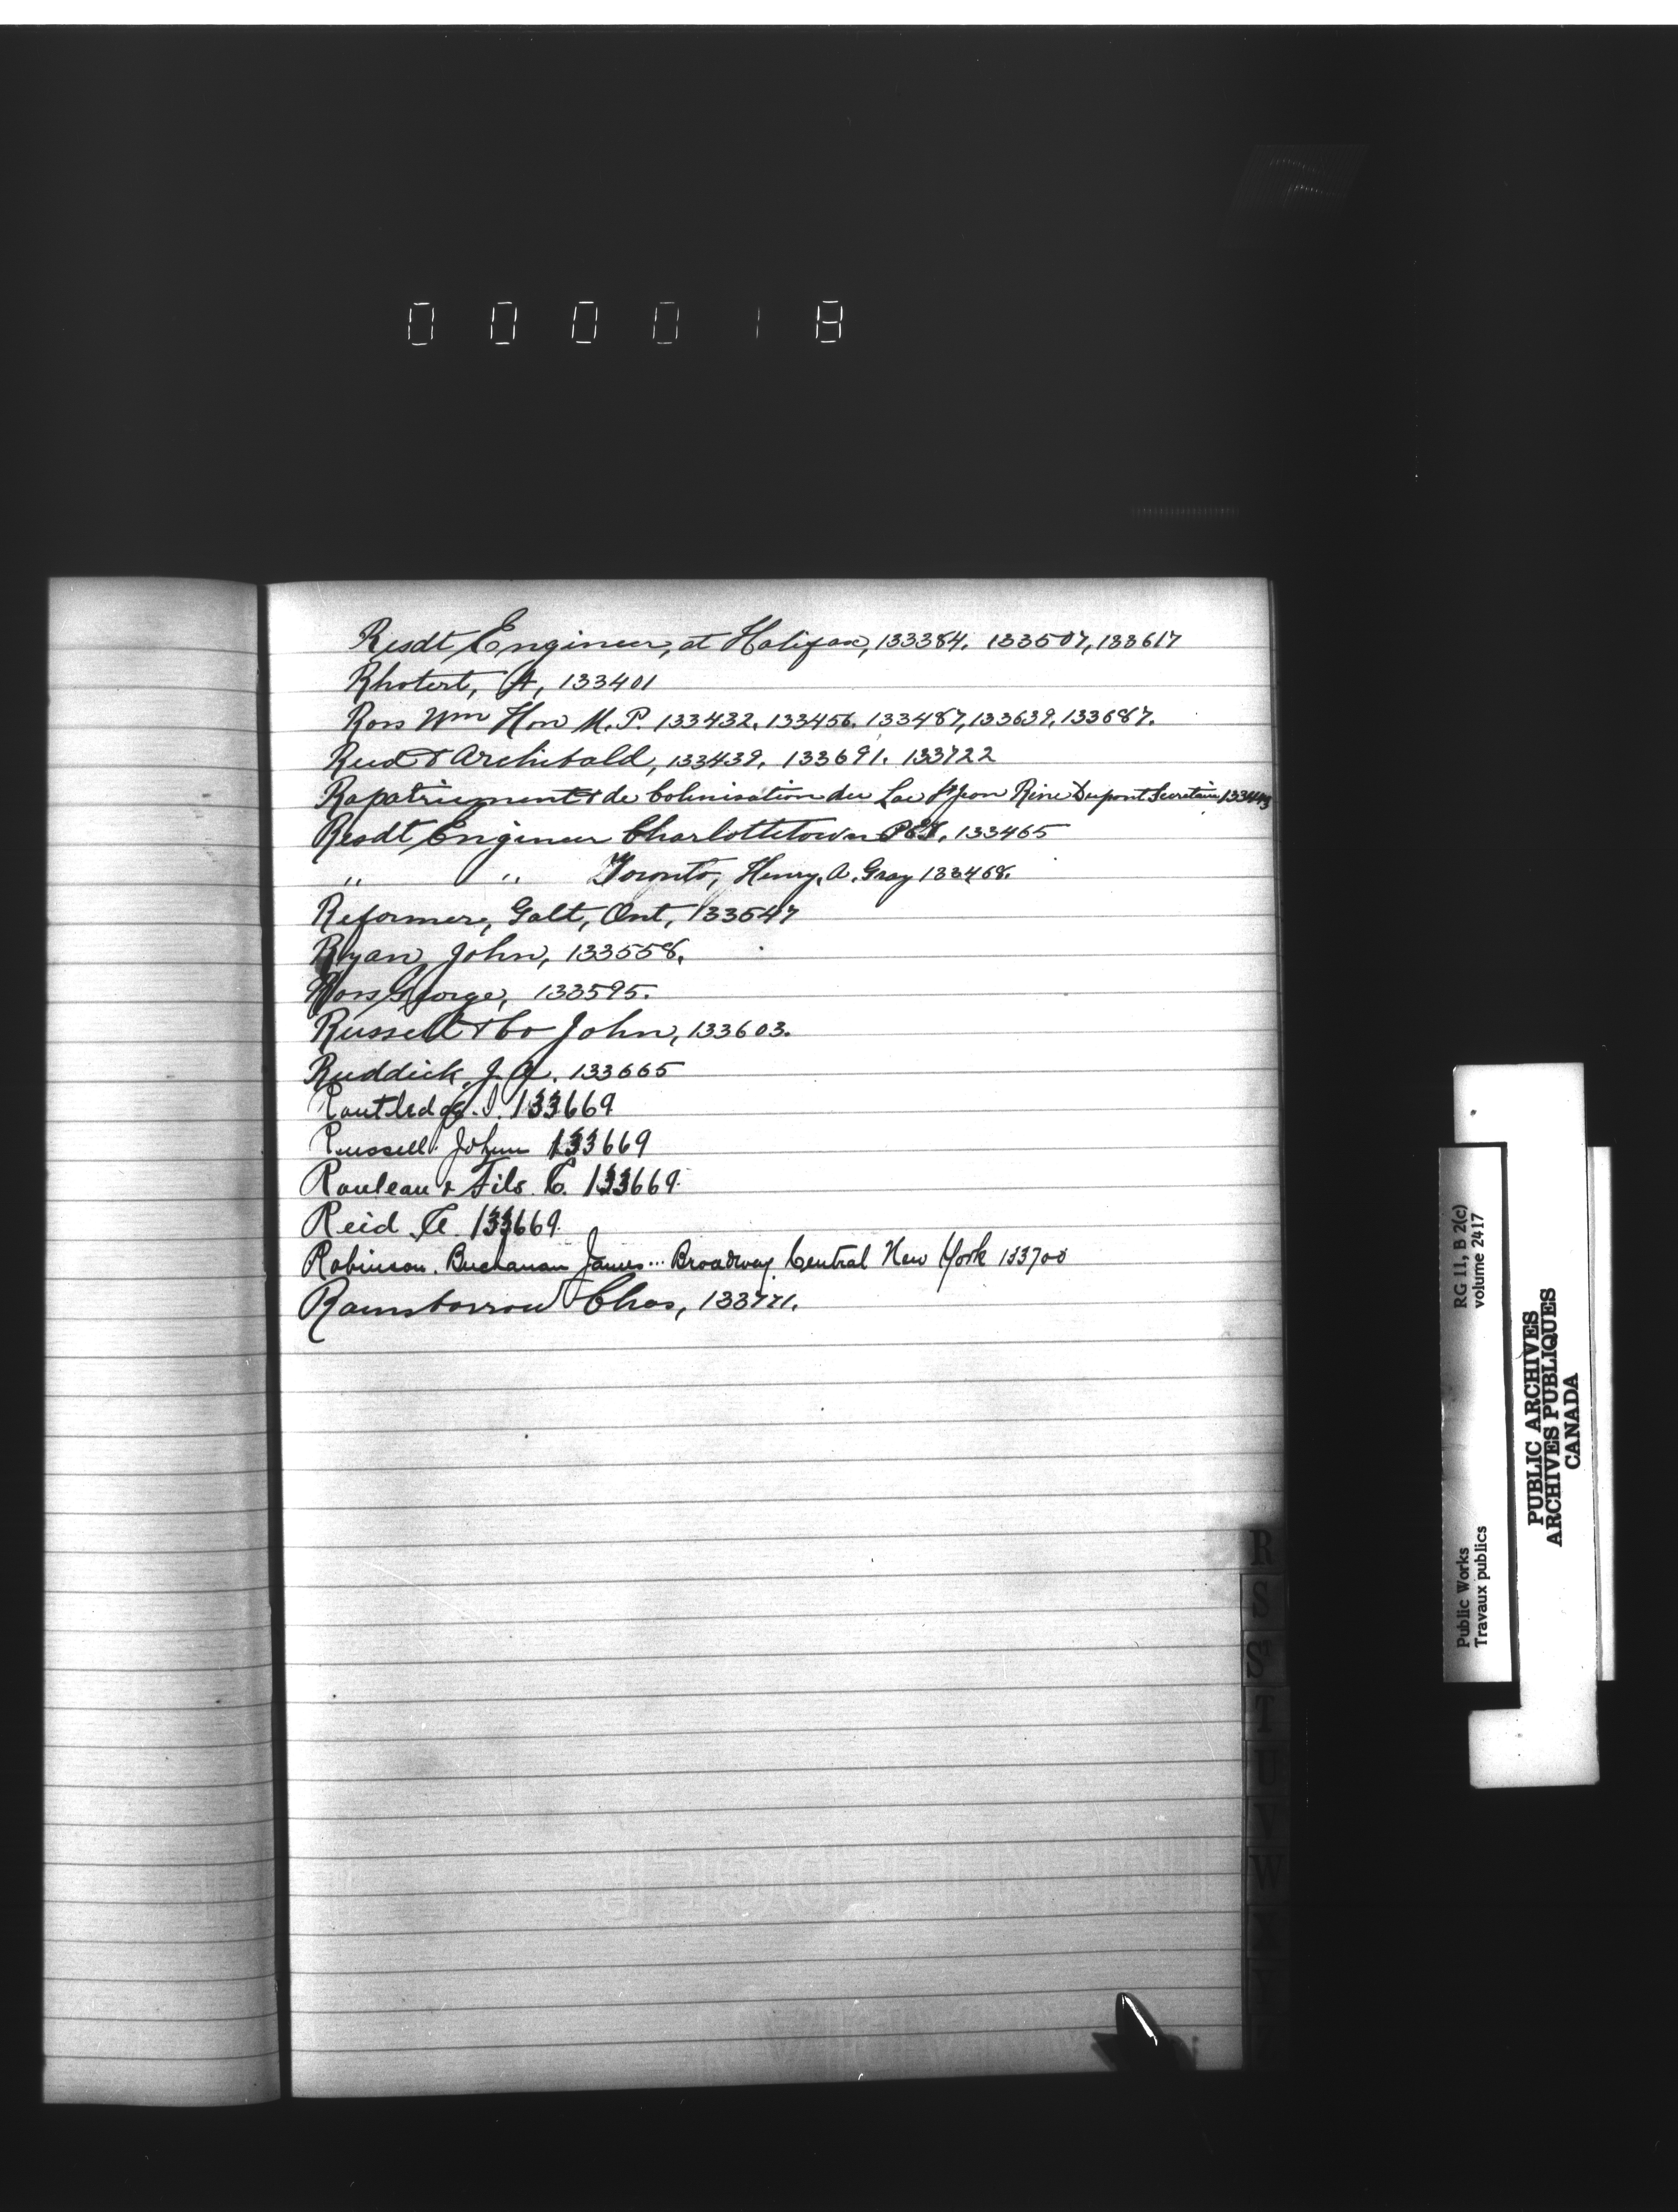 000018
Resdt Engineer, at Halifax, 133384. 133507, 133617
Rhotert, A, 133401
Ross Wm Hon M.P. 133432. 133456. 133487, 133639, 133687.
Reid & Archibald, 133439. 133691. 133722
Rapatriement & de Colonisation du Lac St Jean Rene Dupont Secretaire
Resdt Engineer Charlottetown P.E.I. 133465
" " Toronto, Henry, A. Gray 133468.
Reformer, Galt, Ont, 133547
Ryan, John, 133558.
Ross George, 133595.
Russell & Co John, 133603.
Ruddick, J. A. 133665
Routledge. I. 133669
Russell John 133669
Rouleau & Fils C. 133669.
Reid 133669.
Robinson. Buchanan James... Broadway Central New York 133700
Rainsborrow Chas, 133771.
R
S
S
T
U
V
W
X
Y
Z
RG 11, B 2(c)
volume 2417
Public Works
Travaux publics
PUBLIC ARCHIVES
ARCHIVES PUBLIQUES
CANADA